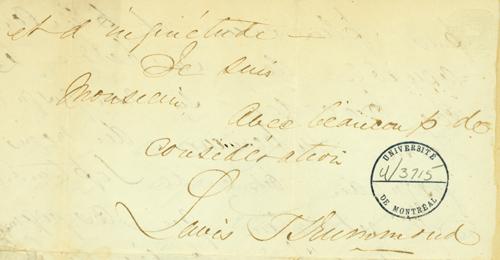 et d'inquiétude —
Je suis
Monsieur
avec beaucoup de
considération
Louis Drummond
UNIVERSITÉ
U/3715
DE MONTRÉAL